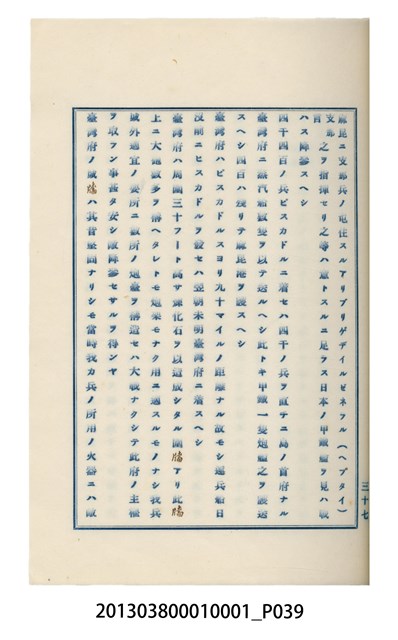 廠昆ニ支那兵ノ屯在スルアリブリゲデイルゼネラル(ヘプタイ)
支那官之ヲ指揮セリ之等ハ意トスルニ足ラス日本ノ甲鐵艦ヲ見ハ敢
ハス降參スヘシ
四千四百ノ兵ピスカドルニ着セハ四千ノ兵ヲ直チニ島ノ首府ナル
臺灣府ニ蒸汽船數隻ヲ以テ送ルヘシ此トキ甲鐵一隻砲艦之ヲ護送
スヘシ四百ハ殘リテ廠昆港ヲ護スヘシ
臺灣府ハピスカドルスヨリ九十マイルノ距離ナル故モシ運兵船日
沒前ニピスカドルヲ發セハ翌朝未明臺灣府ニ着スヘシ
臺灣府ハ周圍三十フート高サ煉化石ヲ以造成シタル圍牆アリ此牆
上ニ大砲數多ヲ備ヘタレトモ砲架モナク用ニ適スルモノナシ我兵
城外適宜ノ要所ニ數所ノ砲臺ヲ備造セハ大戰ナクシテ此府ノ主權
ヲ取ラン事甚タ安シ敵降參セサルヲ得ンヤ
臺灣府ノ城牆ハ其昔堅固ナリシモ當時我カ兵ノ所用ノ火器ニハ敵
三十七
201303800010001_P039